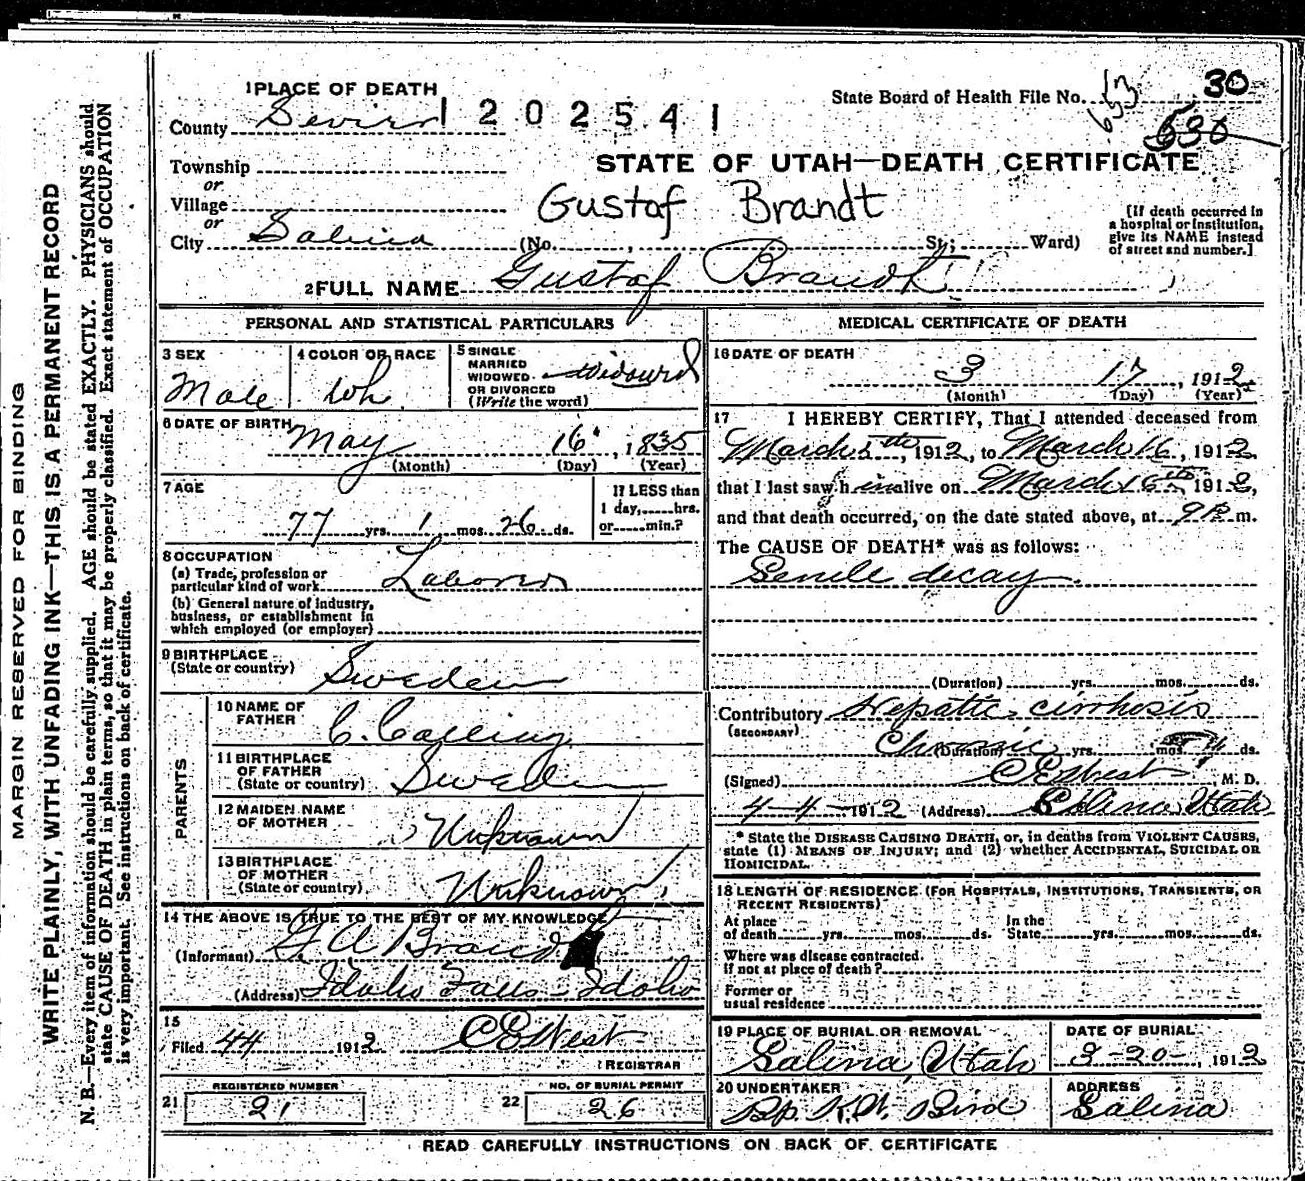 1 PLACE OF DEATH
State Board of Health File No. 653 30
County Sevier 1202541
530
Township
STATE OF UTAH—DEATH CERTIFICATE
or
Village
Gustaf Brandt
or
City Salina (No. , St; Ward)
[If death occurred in
a hospital or institution,
give its NAME instead
of street and number.]
2 FULL NAME Gustaf Brandt
PERSONAL AND STATISTICAL PARTICULARS
3 SEX
Male
4 COLOR OR RACE
Wh.
5 SINGLE
MARRIED
WIDOWED
OR DIVORCED
(Write the word)
Widowed
6 DATE OF BIRTH
May 16, 1835
(Month) (Day) (Year)
7 AGE
77 yrs. 1 mos. 26 ds.
If LESS than
1 day, hrs.
or min.?
8 OCCUPATION
(a) Trade, profession or
particular kind of work Laborer
(b) General nature of industry,
business, or establishment in
which employed (or employer)
9 BIRTHPLACE
(State or country) Sweden
PARENTS
10 NAME OF
FATHER C.
11 BIRTHPLACE
OF FATHER
(State or country) Sweden
12 MAIDEN NAME
OF MOTHER Unknown
13 BIRTHPLACE
OF MOTHER
(State or country) Unknown
14 THE ABOVE IS TRUE TO THE BEST OF MY KNOWLEDGE
(Informant) G A Brand
(Address) Idaho Falls - Idaho
15
Filed 4 4 1912 C E West
REGISTRAR
REGISTERED NUMBER
21 21
NO. OF BURIAL PERMIT
22 26
MEDICAL CERTIFICATE OF DEATH
16 DATE OF DEATH
3 17, 1912
(Month) (Day) (Year)
17 I HEREBY CERTIFY, That I attended deceased from
March 5th, 1912, to March 16, 1912
that I last saw h im alive on March 16th, 1912,
and that death occurred, on the date stated above, at 9 P. m.
The CAUSE OF DEATH* was as follows:
Senile decay.
(Duration) yrs. mos. ds.
Contributory Hepatic cirrhosis
(SECONDARY)
Chronic (Duration) yrs. mos. ds.
(Signed) C E West M. D.
4-4-1912 (Address) Salina Utah
* State the DISEASE CAUSING DEATH, or, in deaths from VIOLENT CAUSES,
state (1) MEANS OF INJURY; and (2) whether ACCIDENTAL, SUICIDAL OR
HOMICIDAL.
18 LENGTH OF RESIDENCE (FOR HOSPITALS, INSTITUTIONS, TRANSIENTS, OR
RECENT RESIDENTS)
At place In the
of death yrs. mos. ds. State yrs. mos. ds.
Where was disease contracted.
if not at place of death?
Former or
usual residence
19 PLACE OF BURIAL OR REMOVAL
Salina, Utah
DATE OF BURIAL
3-20-, 1912
20 UNDERTAKER
Bp. K. W. Bird
ADDRESS
Salina
READ CAREFULLY INSTRUCTIONS ON BACK OF CERTIFICATE
MARGIN RESERVED FOR BINDING
WRITE PLAINLY, WITH UNFADING INK—THIS IS A PERMANENT RECORD
N. B.—Every item of information should be carefully supplied. AGE should be stated EXACTLY. PHYSICIANS should
state CAUSE OF DEATH in plain terms, so that it may be properly classified. Exact statement of OCCUPATION
is very important. See instructions on back of certificate.